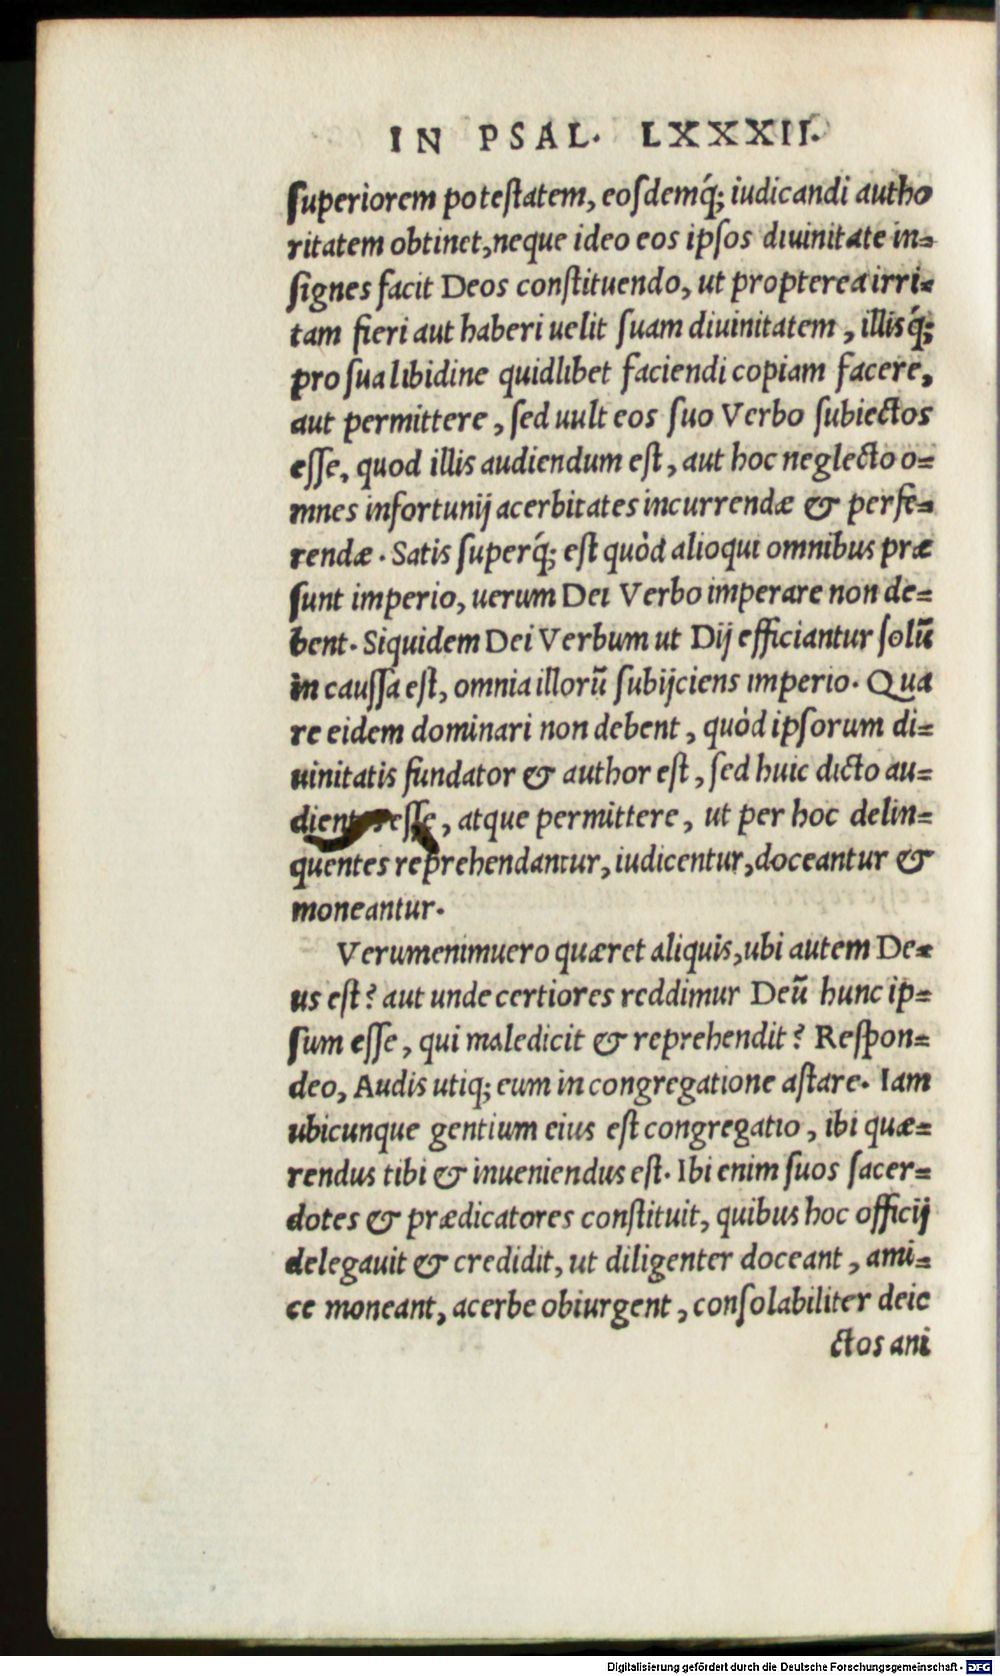 IN PSAL. LXXXII.
ſuperiorem poteſtatem, eoſdemq́; iudicandi autho
ritatem obtinet, neque ideo eos ipſos diuinitate in=
ſignes facit Deos conſtituendo, ut propterea irri=
tam fieri aut haberi uelit ſuam diuinitatem, illisq́;
pro ſua libidine quidlibet faciendi copiam facere,
aut permittere, ſed uult eos ſuo Verbo ſubiectos
eſſe, quod illis audiendum eſt, aut hoc neglecto o=
mnes infortunij acerbitates incurrendæ & perfe=
rendæ. Satis ſuperq́; eſt quòd alioqui omnibus præ
ſunt imperio, uerum Dei Verbo imperare non de=
bent. Siquidem Dei Verbum ut Dij efficiantur ſolũ
in cauſſa eſt, omnia illorũ ſubijciens imperio. Qua
re eidem dominari non debent, quòd ipſorum di=
uinitatis fundator & author eſt, ſed huic dicto au=
dientes eſſe, atque permittere, ut per hoc delin=
quentes reprehendantur, iudicentur, doceantur &
moneantur.
Verumenimuero quæret aliquis, ubi autem De=
us eſt? aut unde certiores reddimur Deũ hunc ip=
ſum eſſe, qui maledicit & reprehendit? Reſpon=
deo, Audis utiq; eum in congregatione aſtare. Iam
ubicunque gentium eius eſt congregatio, ibi quæ=
rendus tibi & inueniendus eſt. Ibi enim ſuos ſacer=
dotes & prædicatores conſtituit, quibus hoc officij
delegauit & credidit, ut diligenter doceant, ami=
ce moneant, acerbe obiurgent, conſolabiliter deie
ctos ani
Digitalisierung gefördert durch die Deutsche Forschungsgemeinschaft - DFG